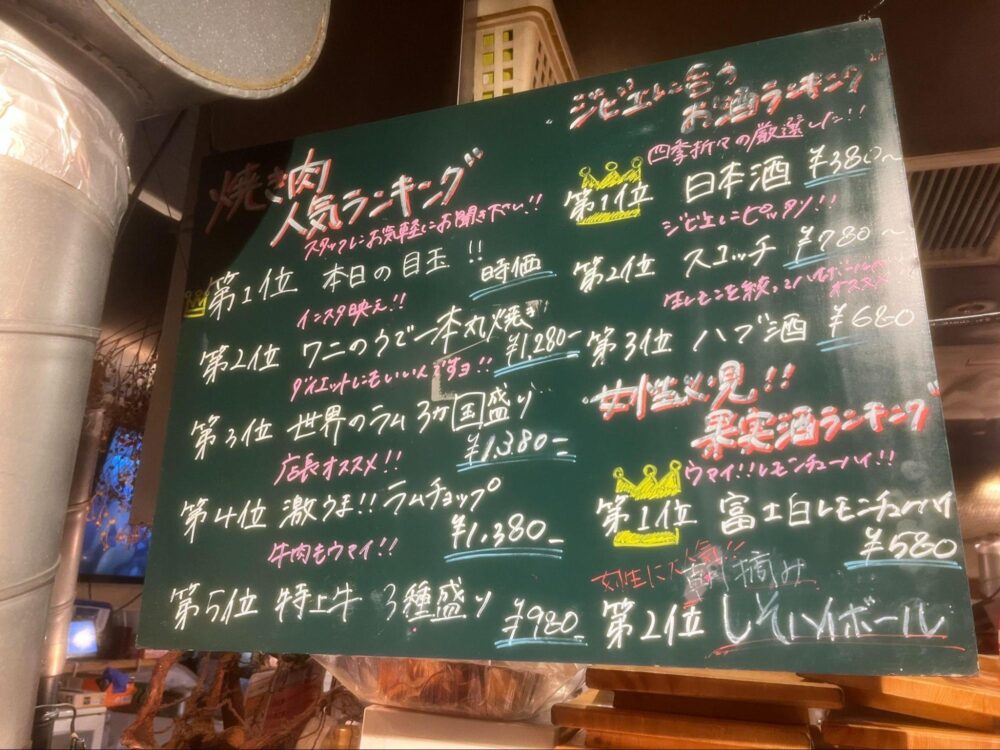 焼き肉
人気ランキング
スタッフにお気軽にお聞き下さい!!
第1位 本日の目玉!! 時価
インスタ映え!!
第2位 ワニのうで一本丸焼き ¥1,280-
ダイエットにもいいんですヨ!!
第3位 世界のラム3カ国盛り
¥1,380-
店長オススメ!!
第4位 激うま!!ラムチョップ
¥1,380-
牛肉もウマイ!!
第5位 特上牛 3種盛り ¥980-
ジビエに合う
お酒ランキング
四季折々の厳選した!!
第1位 日本酒 ¥380~
ジビエにピッタリ!!
第2位 スコッチ ¥780~
生レモンを絞ったハイボールが
オススメ
第3位 ハブ酒 ¥680
女性必見!!
果実酒ランキング
ウマイ!!レモンチューハイ!!
第1位 富士白レモンチューハイ
¥580
女性に人気!!
摘み
第2位 しそハイボール